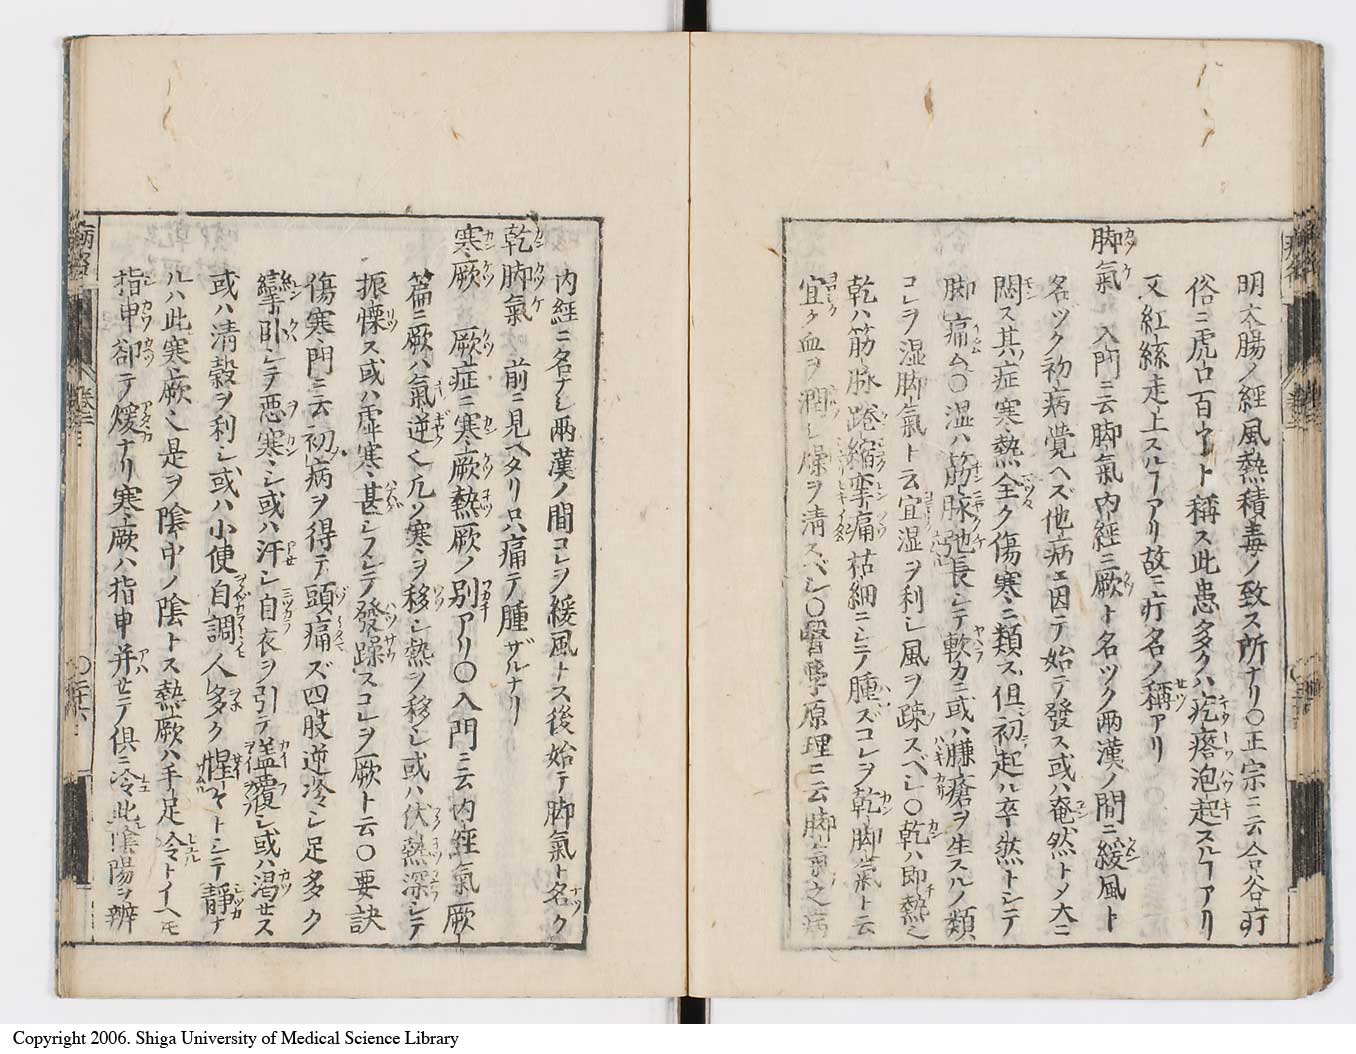 明大腸ノ經風熱積毒ノ致ス所ナリ〇正宗ニ云合谷疔
俗ニ虎口百ウート稱ス此患多クハ疙瘩泡起スルヿアリ
又紅絲走上スルヿアリ故ニ疔名ノ稱アリ
脚氣 入門ニ云脚氣内經ニ厥ト名ツク兩漢ノ間ニ緩風ト
名ヅク初病覺ヘズ他病ニ因テ始テ發ス或ハ奄然トメ大ニ
悶ス其ノ症寒熱全ク傷寒ニ類ス但初起ル卒然トシテ
脚痛ム〇湿ハ筋脉弛長シテ軟カニ或ハ臁瘡ヲ生スルノ類
コレヲ湿脚氣ト云宜湿ヲ利シ風ヲ疎スベシ〇乾ハ即熱也
乾ハ筋脉踡縮攣痛枯細ニシテ腫ズコレヲ乾脚氣ト云
宜ク血ヲ潤シ燥ヲ清スベシ〇醫學原理ニ云脚氣之病
内經ニ名ナシ兩漢ノ間コレヲ緩風トス後始テ脚氣ト名ク
乾脚氣 前ニ見ヘタリ只痛テ腫ザルナリ
寒厥 厥症ニ寒厥熱厥ノ別アリ〇入門ニ云内經氣厥
篇ニ厥ハ氣逆也凡ソ寒ヲ移シ熱ヲ移シ或ハ伏熱深シテ
振慄ス或ハ虚寒甚シフシテ發躁スコレヲ厥ト云〇要訣
傷寒門ニ云初病ヲ得テ頭痛ズ四肢逆冷シ足多ク
攣引シテ惡寒シ或ハ汗シ自衣ヲ引テ蓋覆シ或ハ渇セス
或ハ清穀ヲ利シ或ハ小便自調人多ク惺々トシテ靜ナ
ルハ此寒厥也是ヲ陰中ノ陰トス熱厥ハ手足冷トイヘモ
指申卻テ煖ナリ寒厥ハ指申并セテ倶ニ冷此陰陽ヲ辨